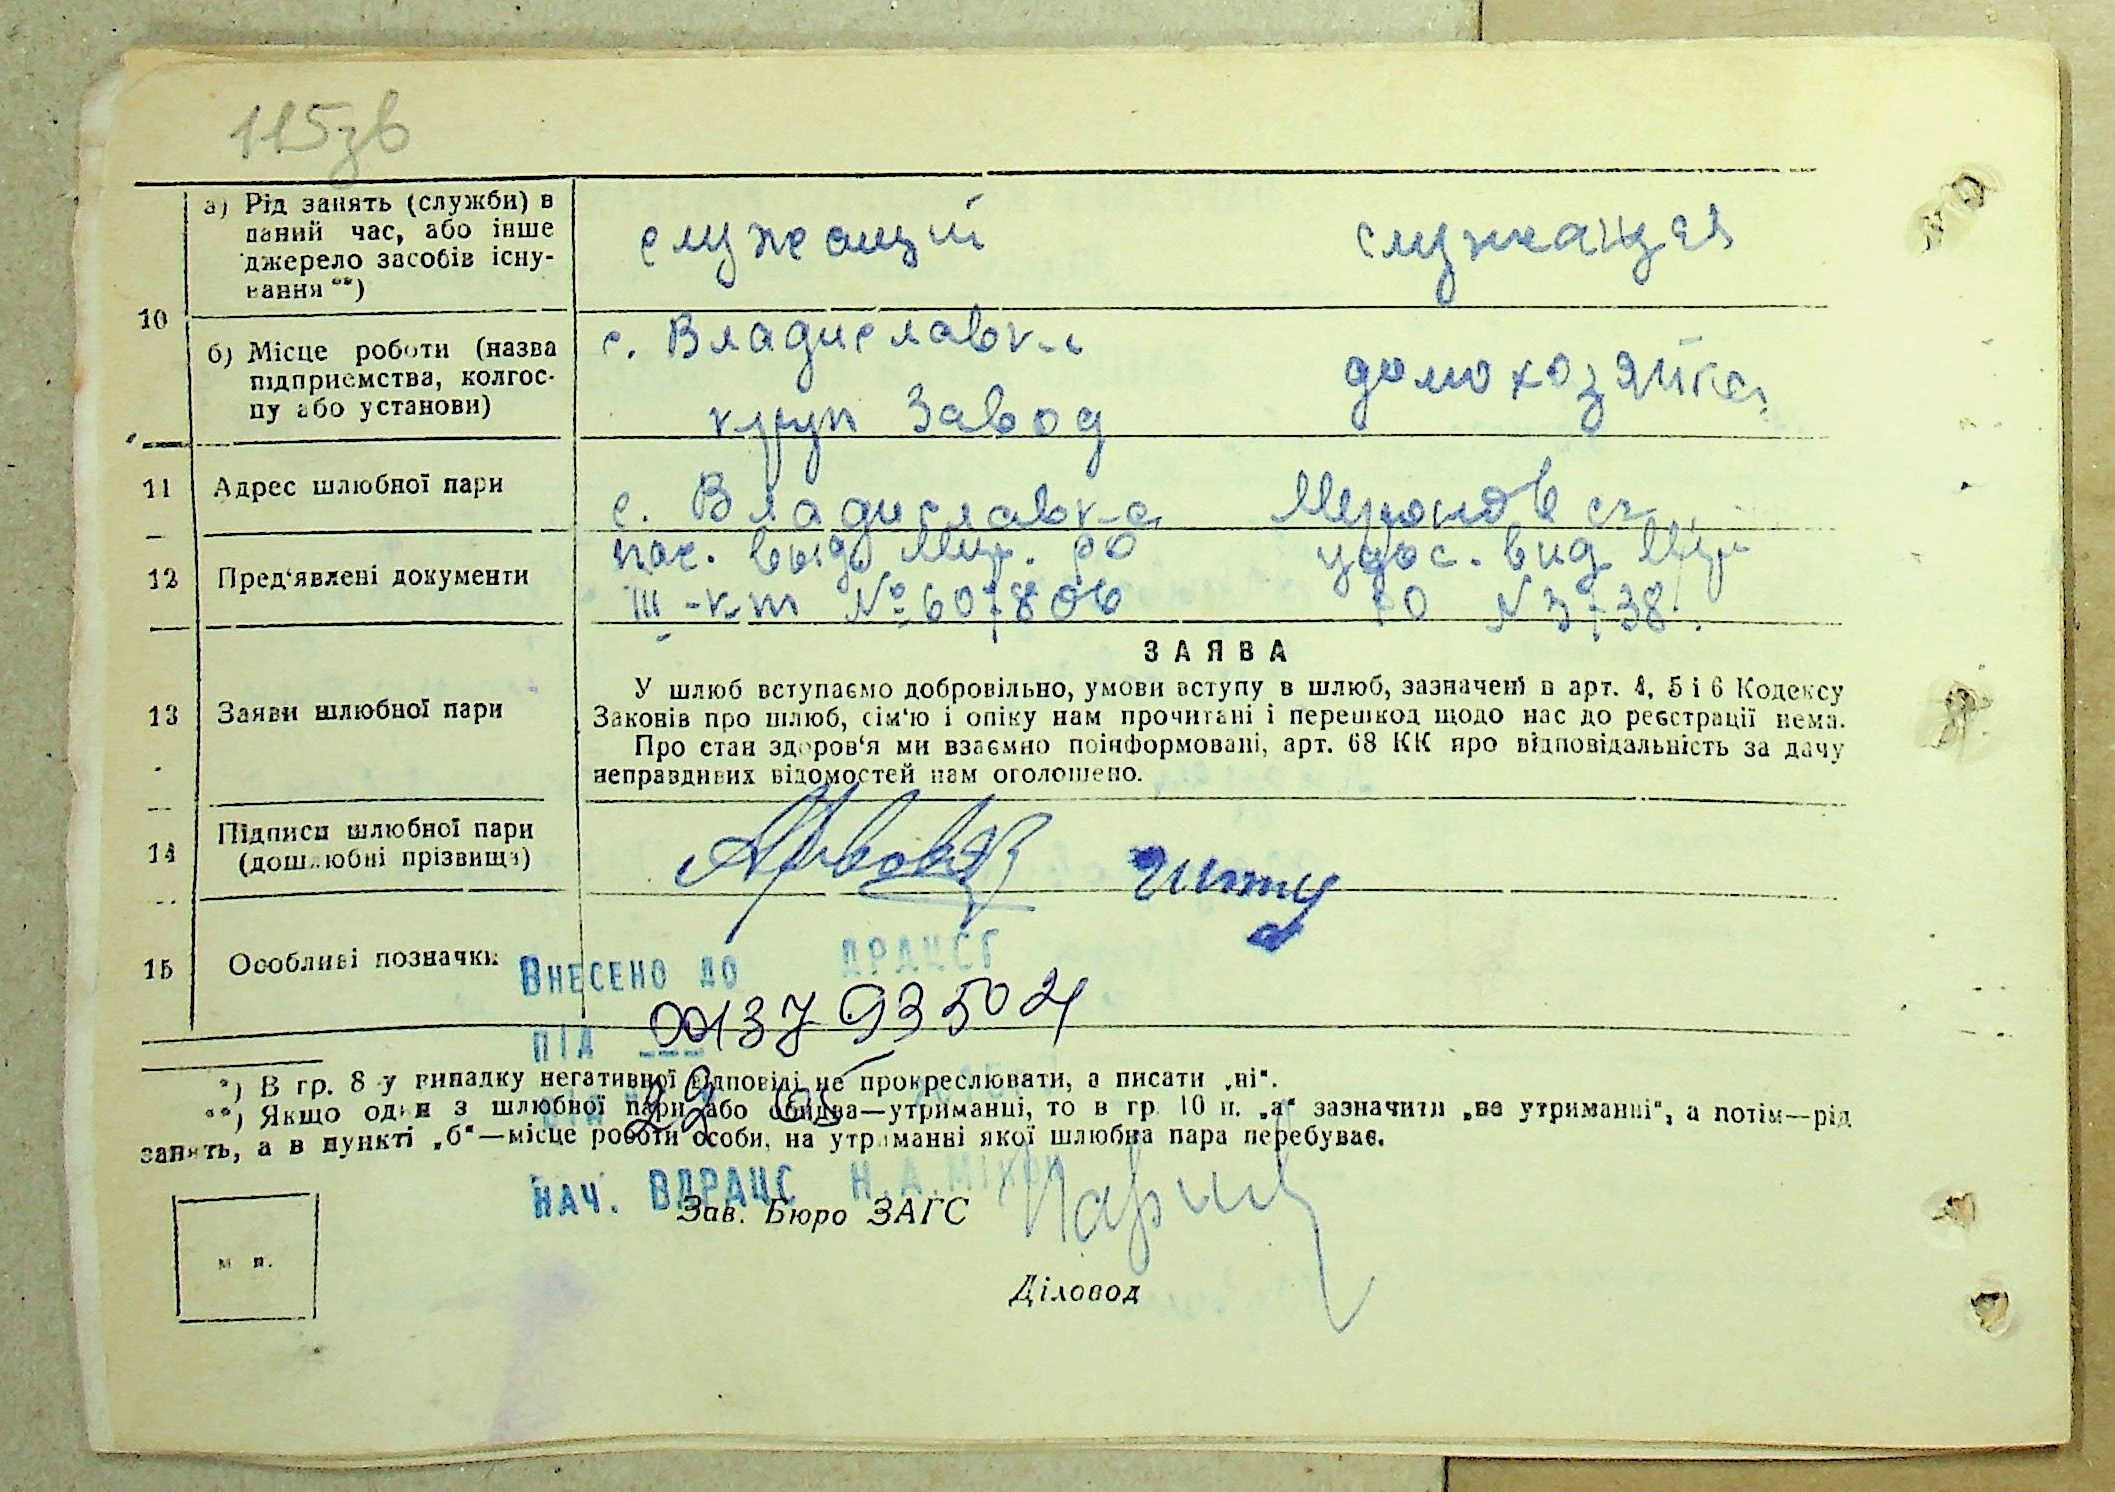 115зв
10
а) Рід занять (служби) в
даний час, або інше
джерело засобів існу-
вання **)
служащий
служащая
б) Місце роботи (назва
підприємства, колгос-
пу або установи)
с. Владиславка
круп завод
домохозяйка
11
Адрес шлюбної пари
с. Владиславка
12
Пред'явлені документи
пас. выд. Мир. РО
III-км № 607806
удос. вид Мир
РО N 3738.
13
Заяви шлюбної пари
ЗАЯВА
У шлюб вступаємо добровільно, умови вступу в шлюб, зазначені в арт. 4, 5 і 6 Кодексу
Законів про шлюб, сім'ю і опіку нам прочитані і перешкод щодо нас до реєстрації нема.
Про стан здоров'я ми взаємно поінформовані, арт. 68 КК про відповідальність за дачу
неправдивих відомостей нам оголошено.
14
Підписи шлюбної пари
(дошлюбні прізвища)
15
Особливі позначки
Внесено до ДРАЦСГ
під 0013793504
*) В гр. 8 у випадку негативної відповіді не прокреслювати, а писати „ні“.
**) Якщо один з шлюбної пари або обидва—утриманці, то в гр. 10 п. „а“ зазначити „на утриманні“, а потім—рід
занять, а в пункті „б“—місце роботи особи, на утриманні якої шлюбна пара перебуває.
Нач. ВДРАЦС Н.А.
Зав. Бюро ЗАГС
м п.
Діловод